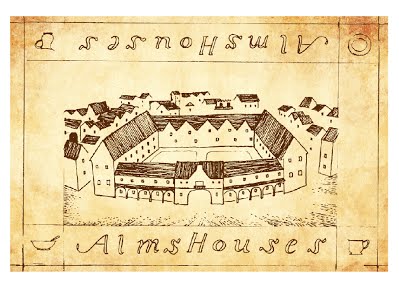 AlmsHouses
AlmsHouses